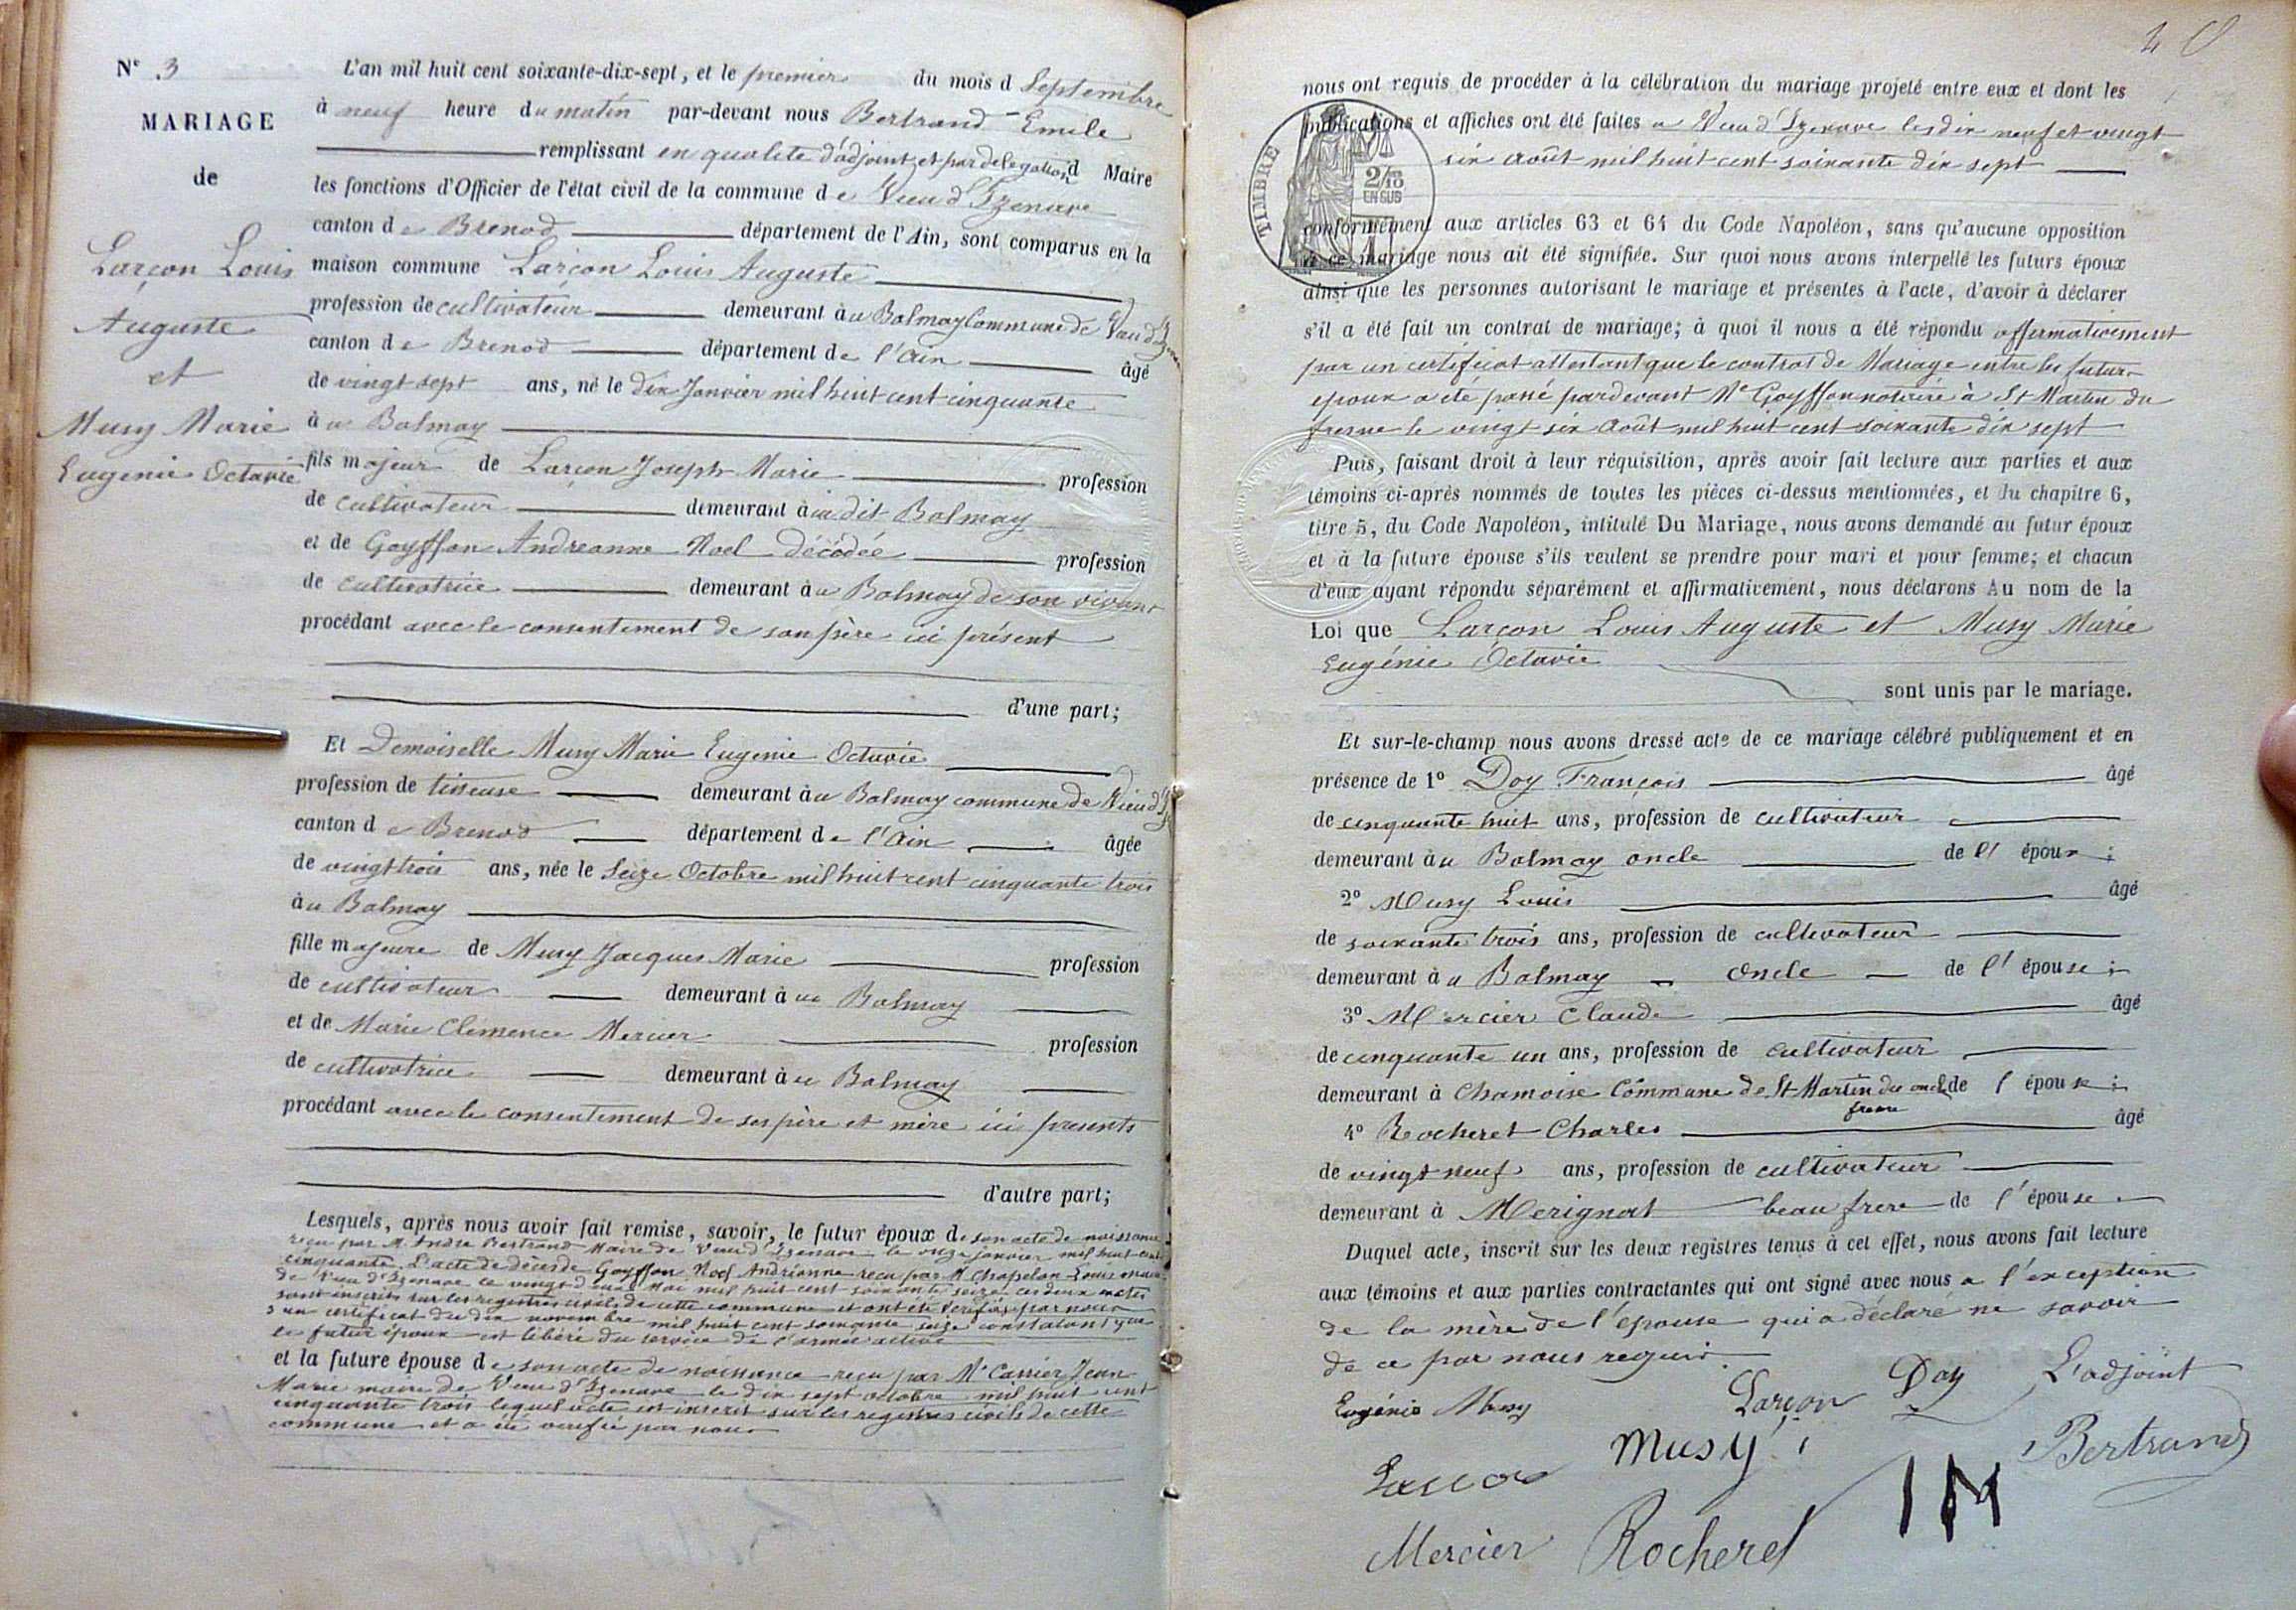 Nº 3
MARIAGE
de
Larçon Louis
Auguste
et
Musy Marie
Eugenie Octavie
L'an mil huit cent soixante-dix-sept, et le premier du mois d Septembre
à neuf heure du matin par-devant nous Bertrand Emile
remplissant en qualité d'adjoint et par delegation d Maire
les fonctions d'Officier de l'état civil de la commune de Vieu d'Izenave
canton de Brenod département de l'Ain, sont comparus en la
maison commune Larçon Louis Auguste
profession de cultivateur demeurant à u Balmay Commune de Vieu d'Izenave
canton de Brenod département de l'Ain âgé
de vingt sept ans, né le dix Janvier mil huit cent cinquante
à u Balmay
fils majeur de Larçon Joseph Marie profession
de cultivateur demeurant à u dit Balmay
et de Goyffon Andreanne Noel décédée profession
de cultivatrice demeurant à u Balmay de son vivant
procédant avec le consentement de son père ici présent
d'une part;
Et Demoiselle Musy Marie Eugenie Octavie
profession de tisseuse demeurant à u Balmay commune de Vieu d'Iz
canton de Brenod département de l'Ain âgée
de vingt trois ans, née le Seize Octobre mil huit cent cinquante trois
à u Balmay
fille majeure de Musy Jacques Marie profession
de cultivateur demeurant à u Balmay
et de Marie Clémence Mercier profession
de cultivatrice demeurant à u Balmay
procédant avec le consentement de ses père et mère ici presents
d'autre part;
Lesquels, après nous avoir fait remise, savoir, le futur époux de son acte de naissance
reçu par M. André Bertrand Maire de Vieu d'Izenave le onze janvier mil huit cent
cinquante. L'acte de décès de Goyffon Noel Andrianne reçu par M Chapelon Louis maire
de Vieu d'Izenave le vingt deux Mai mil huit cent soixante seize ces deux actes
sont inscrits sur les registres civils de cette commune et ont été verifiés par nous
3 un certificat du dix novembre mil huit cent soixante seize constatant que
le futur époux est libéré du service de l'armée active
et la future épouse de son acte de naissance reçu par Mr Carrier Jean
Marie maire de Vieu d'Izenave le dix sept octobre mil huit cent
cinquante trois lequel acte est inscrit sur les registres civils de cette
commune et a été verifié par nous
nous ont requis de procéder à la célébration du mariage projeté entre eux et dont les
publications et affiches ont été faites a Vieu d'Izenave les dix neuf et vingt
six Août mil huit cent soixante dix sept
TIMBRE
2/10
EN SUS
conformément aux articles 63 et 64 du Code Napoléon, sans qu'aucune opposition
à ce mariage nous ait été signifiée. Sur quoi nous avons interpellé les futurs époux
ainsi que les personnes autorisant le mariage et présentes à l'acte, d'avoir à déclarer
s'il a été fait un contrat de mariage; à quoi il nous a été répondu affirmativement
par un certificat attestant que le contrat de Mariage entre les futurs
epoux a été passé pardevant Me Goyffon notaire à St Martin du
fresne le vingt six Août mil huit cent soixante dix sept
Puis, faisant droit à leur réquisition, après avoir fait lecture aux parties et aux
témoins ci-après nommés de toutes les pièces ci-dessus mentionnées, et du chapitre 6,
titre 5, du Code Napoléon, intitulé Du Mariage, nous avons demandé au futur époux
et à la future épouse s'ils veulent se prendre pour mari et pour femme; et chacun
d'eux ayant répondu séparément et affirmativement, nous déclarons Au nom de la
Loi que Larçon Louis Auguste et Musy Marie
Eugénie Octavie
sont unis par le mariage.
Et sur-le-champ nous avons dressé acte de ce mariage célébré publiquement et en
présence de 1º Doy François âgé
de cinquante huit ans, profession de cultivateur
demeurant à u Balmay oncle de l' époux;
2º Musy Louis âgé
de soixante trois ans, profession de cultivateur
demeurant à u Balmay oncle de l' épouse;
3º Mercier Claude âgé
de cinquante un ans, profession de cultivateur
demeurant à Chamoise Commune de St Martin du oncle de l' épouse;
fresne
4º Rocheret Charles âgé
de vingt neuf ans, profession de cultivateur
demeurant à Merignat beau frere de l' épouse
Duquel acte, inscrit sur les deux registres tenus à cet effet, nous avons fait lecture
aux témoins et aux parties contractantes qui ont signé avec nous a l'exception
de la mère de l'épouse qui a déclaré ne savoir
de ce par nous requis.
Eugénie Musy Larçon Doy L'adjoint
Musy Bertrand
Larçon
Mercier Rocheret